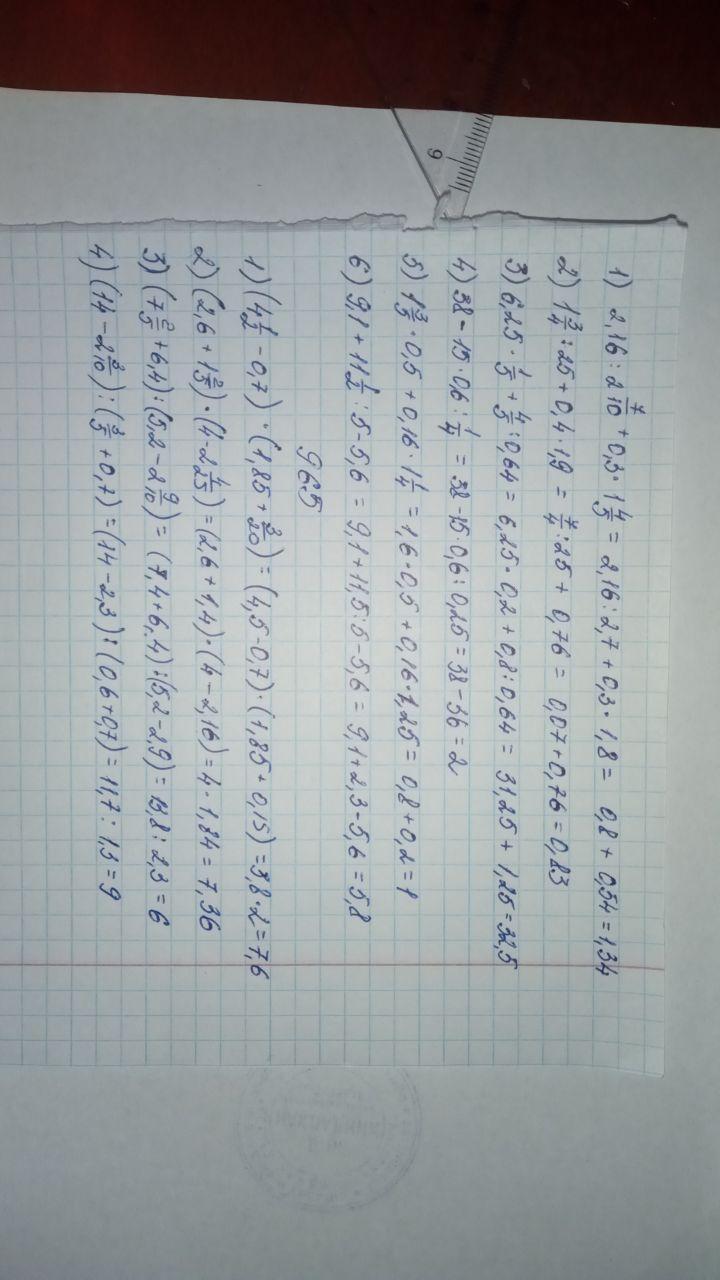 1) 2,16 : 2 7/10 + 0,3 · 1 4/5 = 2,16 : 2,7 + 0,3 · 1,8 = 0,8 + 0,54 = 1,34
2) 1 3/4 : 25 + 0,4 · 1,9 = 7/4 : 25 + 0,76 = 0,07 + 0,76 = 0,83
3) 6,25 · 1/5 + 4/5 : 0,64 = 6,25 · 0,2 + 0,8 : 0,64 = 31,25 + 1,25 = 32,5
4) 38 - 15 · 0,6 : 1/4 = 38 - 15 · 0,6 : 0,25 = 38 - 36 = 2
5) 1 3/5 · 0,5 + 0,16 · 1 1/4 = 1,6 · 0,5 + 0,16 · 1,25 = 0,8 + 0,2 = 1
6) 9,1 + 11 1/2 : 5 - 5,6 = 9,1 + 11,5 : 5 - 5,6 = 9,1 + 2,3 - 5,6 = 5,8
965
1) (4 1/2 - 0,7) · (1,85 + 3/20) = (4,5 - 0,7) · (1,85 + 0,15) = 3,8 · 2 = 7,6
2) (2,6 + 1 2/5) · (4 - 2 4/25) = (2,6 + 1,4) · (4 - 2,16) = 4 · 1,84 = 7,36
3) (7 2/5 + 6,4) : (5,2 - 2 9/10) = (7,4 + 6,4) : (5,2 - 2,9) = 13,8 : 2,3 = 6
4) (14 - 2 3/10) : (3/5 + 0,7) = (14 - 2,3) : (0,6 + 0,7) = 11,7 : 1,3 = 9
9